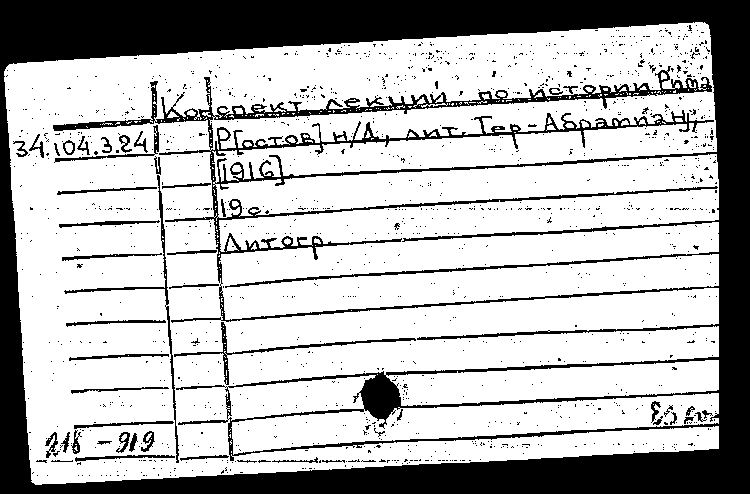 Конспект лекций по истории Рима
34.104.3.24 Р[остов] н/Д, лит. Тер-Абрамиан,
[1916].
19 с.
Литогр.
218-919